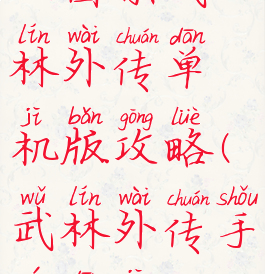 lín wài chuán dān
林外传单
jī bǎn gōng lüè
机版攻略(
wǔ lín wài chuán shǒu
武林外传手